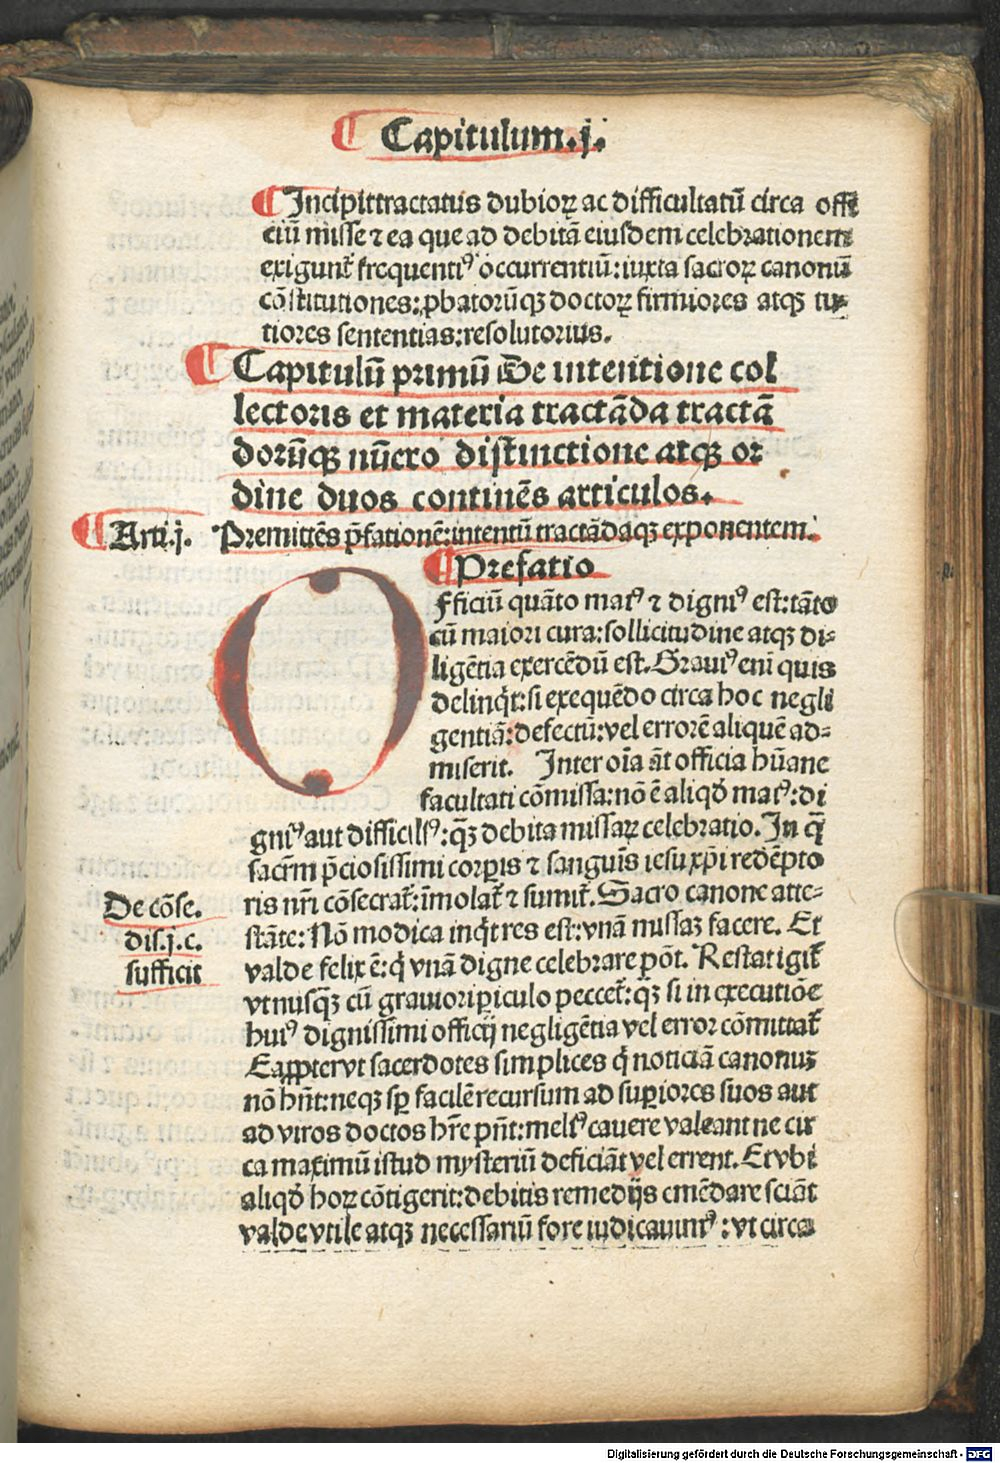 Capitulum .j.
Incipit tractatus dubioꝝ ac difficultatū circa offi
ciū misse ⁊ ea que ad debitā eiusdem celebrationem
exigunt᷑ frequentiꝰ occurrentiū: iuxta sacroꝝ canonū
cōstitutiones: ꝓbatorūqꝫ doctoꝝ firmiores atqꝫ tu⸗
tiores sententias: resolutorius.
Capitulū primū De intentione col
lectoris et materia tractāda tractā
dorūqꝫ nūero distinctione atqꝫ or
dine duos continēs articulos.
Arti .j. Premittēs p̄fationē: intentū tractādaqꝫ exponentem.
Prefatio
Officiū quāto maiꝰ ⁊ digniꝰ est: tāto
cū maiori cura: sollicitudine atqꝫ di⸗
ligētia exercēdū est. Grauiꝰ eni quis
delinq̇t: si exequēdo circa hoc negli
gentiā: defectū: vel errorē aliquē ad⸗
miserit. Inter oīa āt officia hūane
facultati cōmissa: nō ē aliqd̕ maiꝰ: di
gniꝰ aut difficilꝰ: qꝫ̄ debita missaꝝ celebratio. In q̄
sacr̄m p̄ciosissimi corꝑis ⁊ sanguīs iesu xp̄i redēpto
ris nr̄i cōsecrat᷑: īmolat᷑ ⁊ sumit᷑. Sacro canone atte⸗
De cōse.
dis.j.c.
sufficit
stāte: Nō modica inq̇t res est: vnā missaꝫ facere. Et
valde felix ē: q̇ vnā digne celebrare pōt. Restat igit᷑
vt nusqꝫ̄ cū grauiori ꝑiculo peccet᷑: qꝫ si in executiōe
huiꝰ dignissimi officij negligētia vel error cōmittat᷑
Eapropter vt sacerdotes simplices q̇ noticiā canonuꝫ
nō hn̄t: neqꝫ sꝑ facilē recursum ad suꝑiores suos aut
ad viros doctos hr̄e pn̄t: meliꝰ cauere valeant ne cir
ca maximū istud mysteriū deficiāt vel errent. Et vbi
aliqd̕ hoꝝ cōtigerit: debitis remedijs emēdare sciāt
valde vtile atqꝫ necessariū fore iudicauimꝰ: vt circa
Digitalisierung gefördert durch die Deutsche Forschungsgemeinschaft - DFG